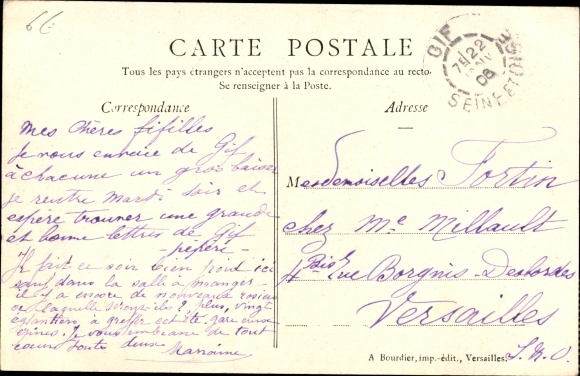 66
CARTE POSTALE
Tous les pays étrangers n'acceptent pas la correspondance au recto.
Se renseigner à la Poste.
Correspondance
Mes chères fifilles
Je vous envoie de Gif
à chacune un gros baiser
je rentre mardi soir et
espère trouver une grande
et bonne lettres de Gif
pépéré
Il fait ce soir bien froid ici
sauf dans la salle à manger
il y a encore de nouveaux rosiers
plus, vingt
à greffer cet été. gare
épines. Je vous embrasse de tout
cœur toute deux
Marraine
Adresse
Mesdemoiselles Fortin
chez Me Millault
4 Bis rue Borgnis-Desbordes
Versailles
S. & O.
GIF
7E 22
JANV
08
SEINE ET OISE
A Bourdier, imp.-édit., Versailles.